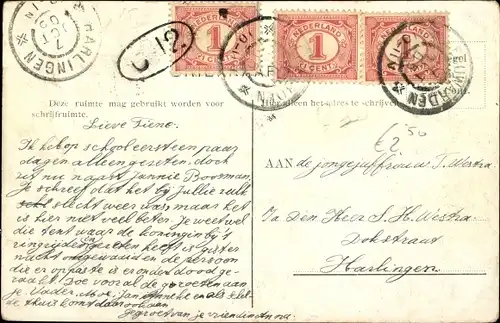 HARLINGEN
7 OCT 09
C 12.
NEDERLAND
1
CENT
NEDERLAND
1
CENT
NEDERLAND
1
CENT
LEEUWARDEN
Deze ruimte mag gebruikt worden voor schrijfruimte.
Hier alleen het adres te schrijven
Lieve Tiene.
Ik heb op school eerst een paar
dagen alleen gezeten, doch
zit nu naast Jannie Bosman.
Je schreef dat het bij Jullie zulk
slecht weer was maar het
is hier niet veel beter. Je weet wel
die tent waar de koningin bij 't
ringrijden gezeten heeft is gister
nacht omgewaaid en de persoon
die er oppaste is eronder dood ge-
raakt. Doe vooral de groeten van
je Vader, Moe, Jan
thuis komt daar ook van
gegroet van je vriendin
€2 50
AAN de jongejuffrouw T. Westra
In Den Heer S. H. Westra
Dokstraat
Harlingen.